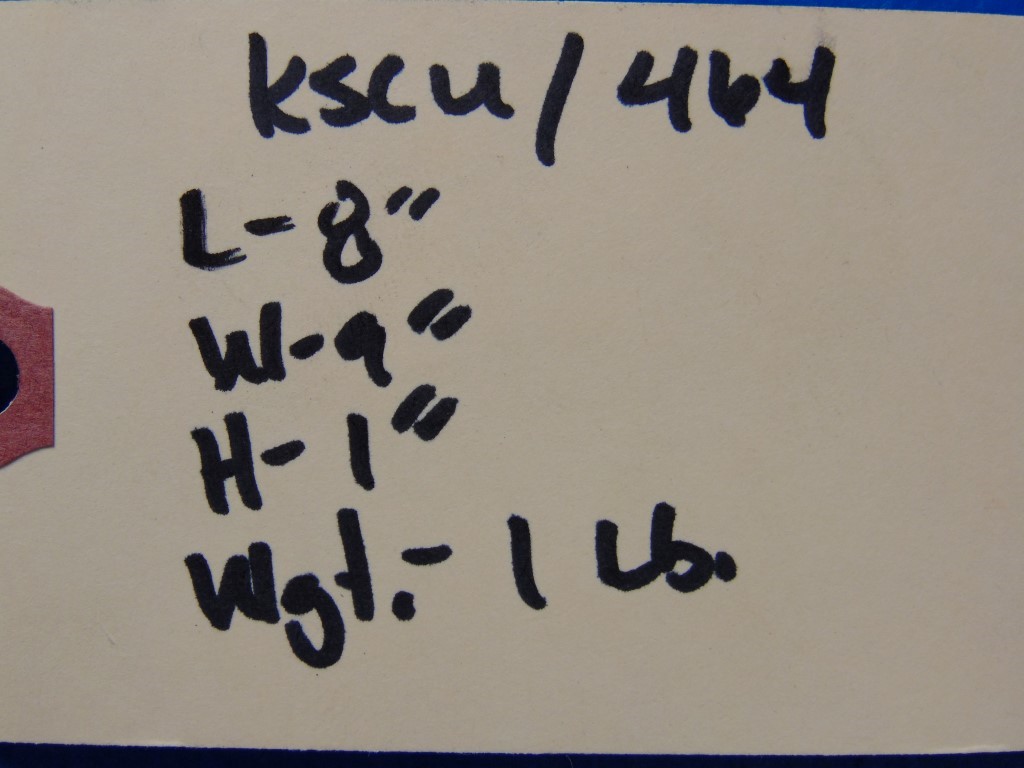 kscu/464
L-8"
W-9"
H-1"
Wgt.- 1 Lb.